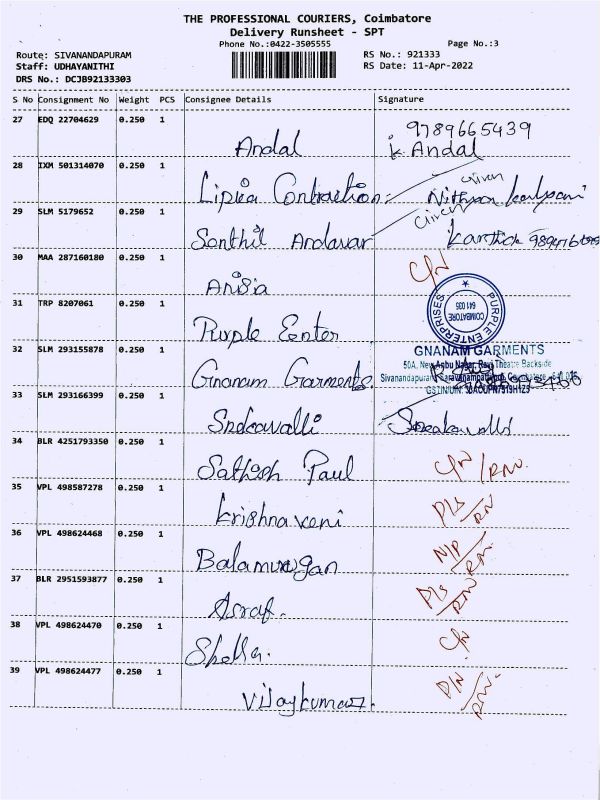 THE PROFESSIONAL COURIERS, Coimbatore
Delivery Runsheet - SPT
Phone No.:0422-3505555 Page No.:3
Route: SIVANANDAPURAM RS No.: 921333
Staff: UDHAYANITHI RS Date: 11-Apr-2022
DRS No.: DCJB92133303
S No Consignment No Weight PCS Consignee Details Signature
27 EDQ 22704629 0.250 1
Andal 9789665439
k. Andal
28 IXM 501314070 0.250 1
Lipica Contraction
29 SLM 5179652 0.250 1
Senthil Andavar Karthik
30 MAA 287160180 0.250 1 C/N
Anisia
31 TRP 8207061 0.250 1
Purple Enter
PURPLE ENTERPRISES
COIMBATORE
641 035
32 SLM 293155878 0.250 1
Gnanam Garments
GNANAM GARMENTS
50A, New Anbu Nagar, Ravi Theatre Backside
Sivanandapuram, Saravanampatti, Coimbatore - 641 035
33 SLM 293166399 0.250 1
Snekavalli Sneakavalli
34 BLR 4251793350 0.250 1 C/N / RN.
Sathish Paul
35 VPL 498587278 0.250 1 D/S / RN
Krishnaveni
36 VPL 498624468 0.250 1 N/P / RN.
Balamurugan
37 BLR 2951593877 0.250 1 D/S / RN
Asraf.
38 VPL 498624470 0.250 1 C/N
Shella.
39 VPL 498624477 0.250 1 D/N / RN.
Vijaykumar.